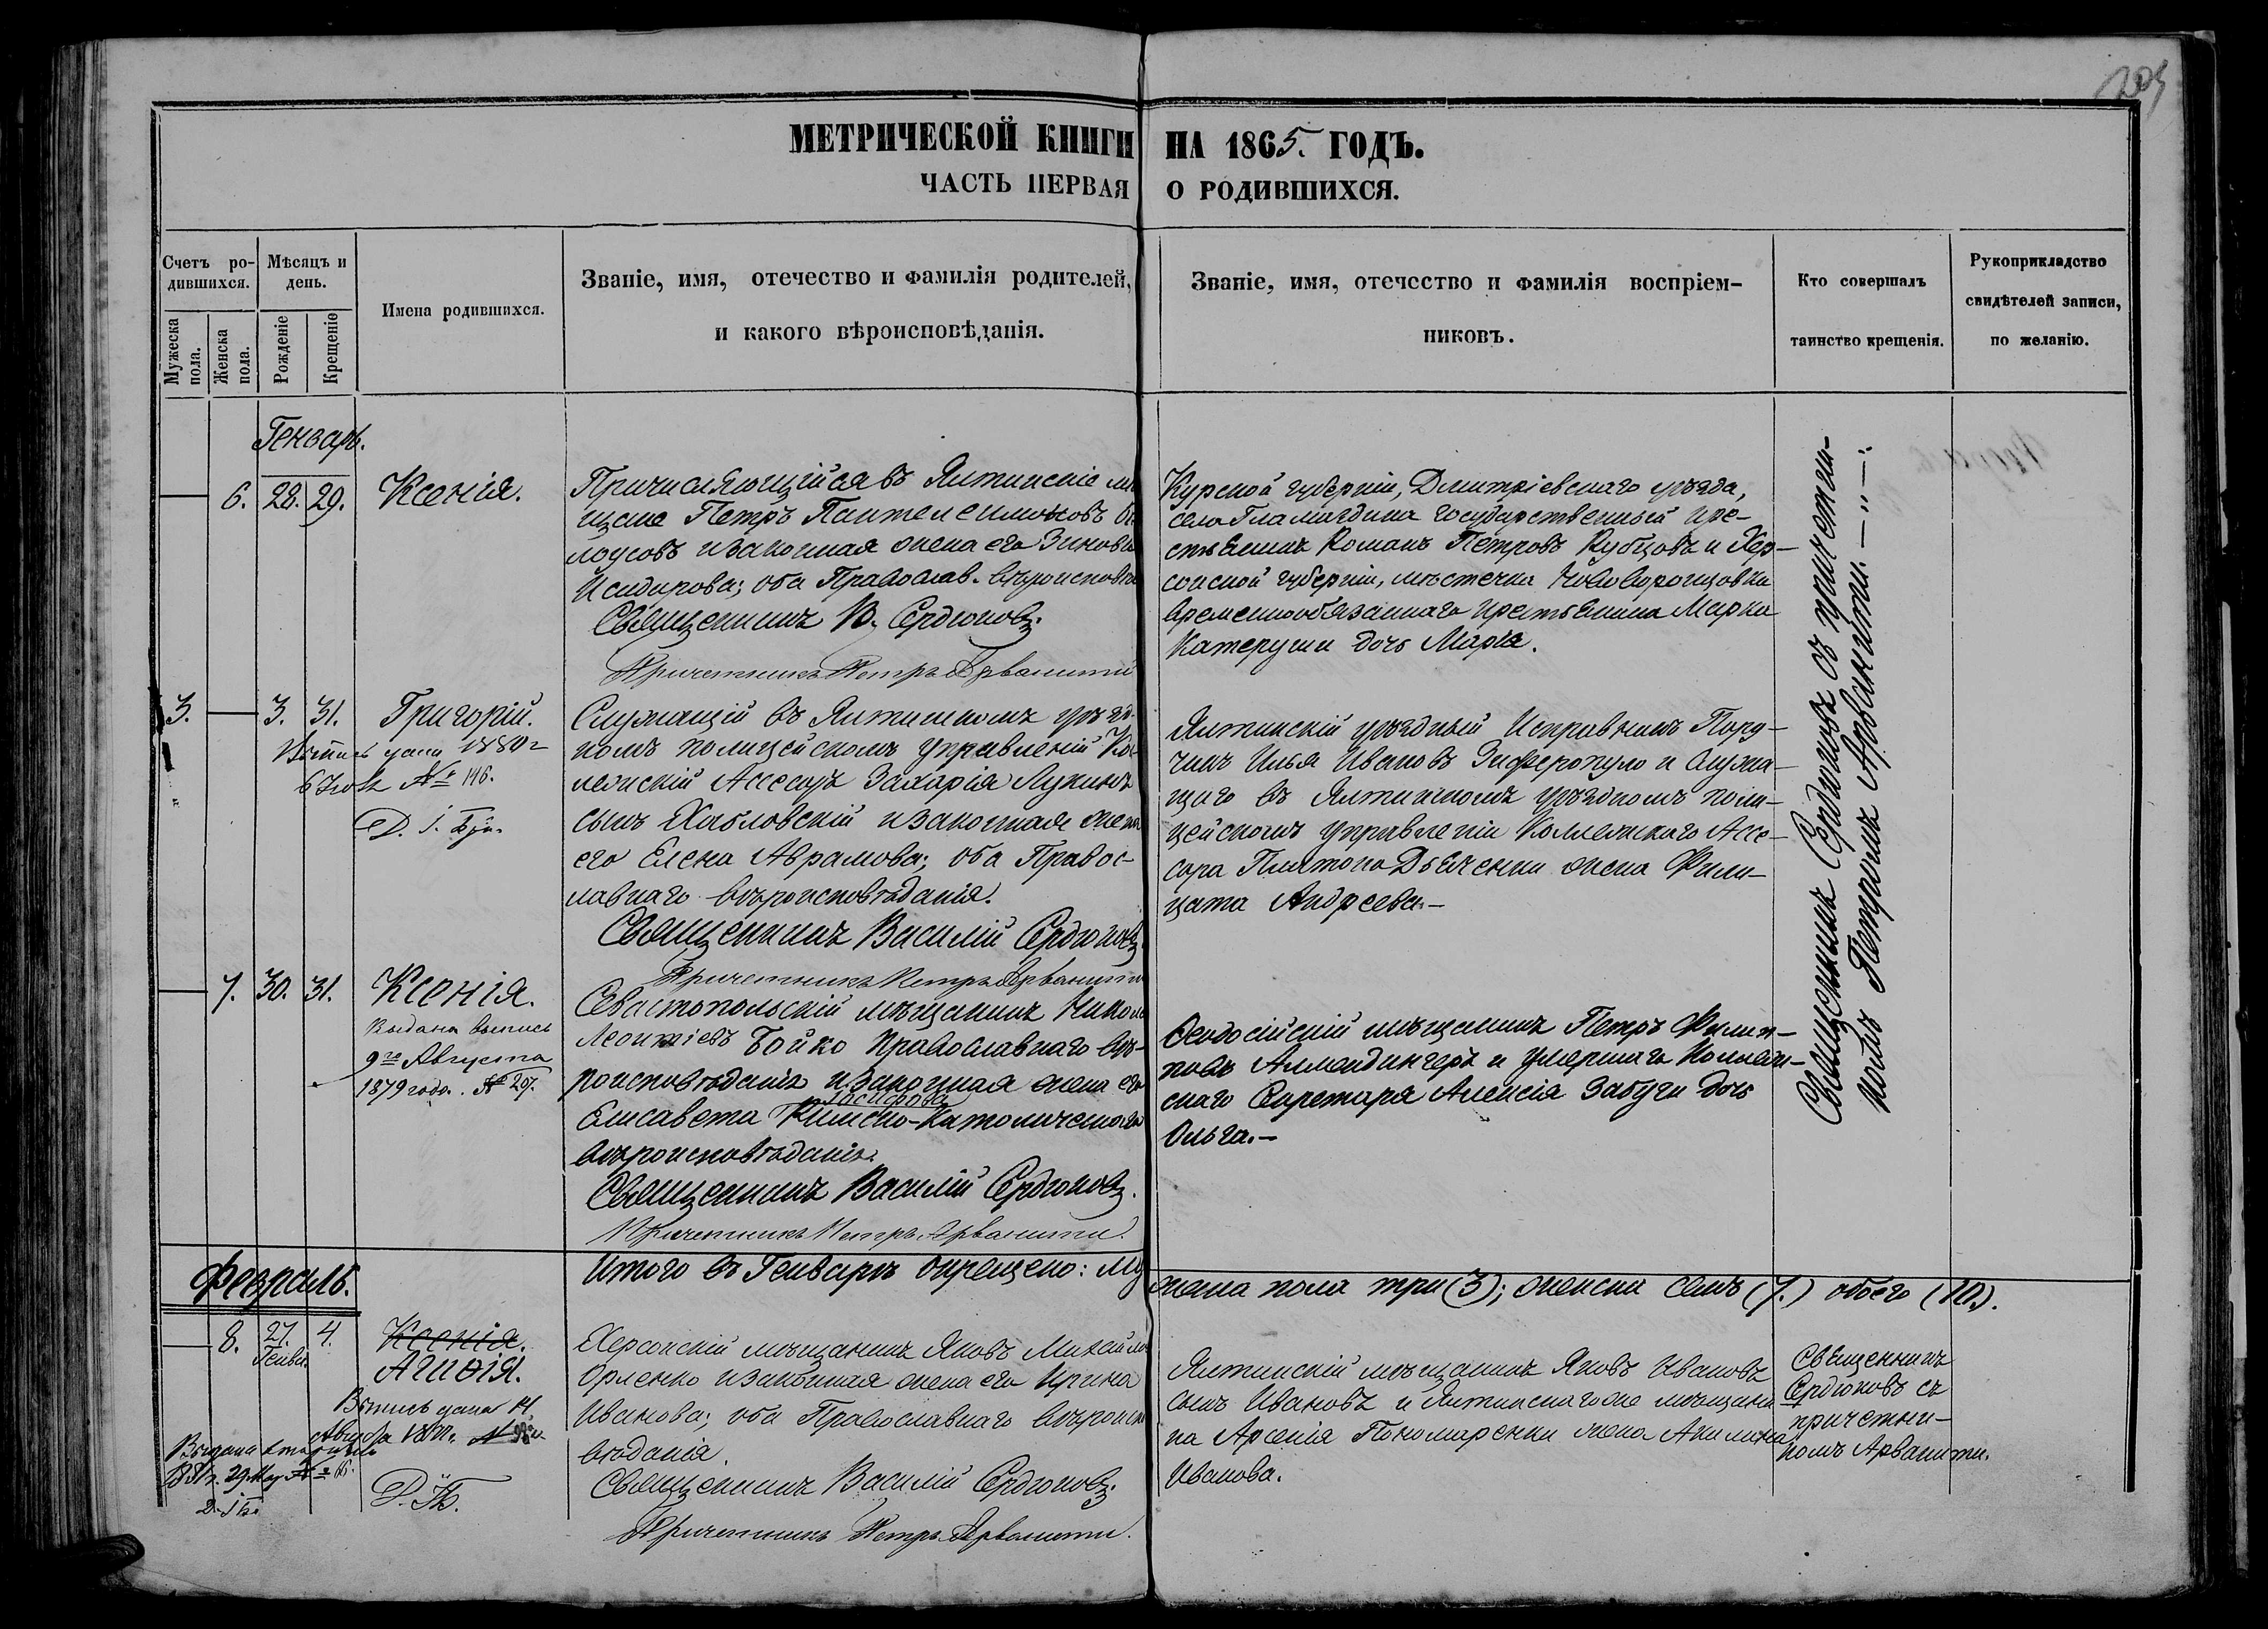 205
МЕТРИЧЕСКОЙ КНИГИ НА 1865. ГОДЪ.
ЧАСТЬ ПЕРВАЯ О РОДИВШИХСЯ.
Счетъ ро-
дившихся.
Мужеска пола.
Женска пола.
Мѣсяцъ и
день.
Рожденіе
Крещеніе
Имена родившихся.
Званіе, имя, отечество и фамилія родителей,
и какого вѣроисповѣданія.
Званіе, имя, отечество и фамилія воспріем-
никовъ.
Кто совершалъ
таинство крещенія.
Рукоприкладство
свидѣтелей записи,
по желанію.
Генварь.
6. 28. 29. Ксенія.
Причисляющійся въ Ялтинскіе мѣ
щане Петръ Пантелеимоновъ Бѣ
лоусовъ и законная жена его Зиновія
Исидорова; оба Православ. вѣроисповѣда
Священникъ В. Сердюковъ.
Причетникъ Петръ Арванити
Курской губерніи, Дмитріевскаго уѣзда,
села Гламаздина государственный кре-
стьянинъ Романъ Петровъ Кубцовъ и Хер-
сонской губерніи, мѣстечка Нововоронцовки
временнообязаннаго крестьянина Марка
Катеруши дочь Марія.
Священникъ Сердюковъ съ причетни-
комъ Петромъ Арванити. — „ —.
3. 3. 31. Григорій.
Выпись дана 1880 г
6 Іюля № 116.
Служащій въ Ялтинскомъ уѣзд-
номъ полицейскомъ управленіи Ко-
лежскій Ассесоръ Захарія Лукинъ
сынъ Хабловскій и законная жена
его Елена Аврамова; оба Правос-
лавнаго вѣроисповѣданія.
Священникъ Василій Сердюковъ.
Причетникъ Петръ Арванити
Ялтинскій уѣздный Исправникъ Пору-
чикъ Илья Ивановъ Зиферопуло и служа-
щаго въ Ялтинскомъ уѣздномъ поли-
цейскомъ управленіи Коллежскаго Ассе-
сора Платона Дьяченки жена Фили-
цата Андреева.—
7. 30. 31. Ксенія.
Выдана выпись
9го Августа
1879 года. № 207.
Севастопольскій мѣщанинъ Никола
Леонтіевъ Бойко Православнаго вѣ-
роисповѣданія и законная жена его
Іосифова
Елисавета Римско-Католическаго
вѣроисповѣданія.
Священникъ Василій Сердюковъ.
Причетникъ Петръ Арванити.
Ѳеодосійскій мѣщанинъ Петръ Филип-
повъ Алмендингеръ и умершаго Коллеж-
скаго Секретаря Алексія Забуги дочь
Ольга.—
Итого въ Генварѣ окрещено: му жеска пола три (3); женска семь (7.) обоего (10.).
Февраль.
8. 27. 4. Ксенія.
Генва.
Агнія.
Выпись дана 14
29 Мая
Херсонскій мѣщанинъ Яковъ Михайло
Орленко и законная жена его Ирина
Иванова; оба Православнаго вѣроиспо
вѣданія.
Священникъ Василій Сердюковъ.
Причетникъ Петръ Арванити.
Ялтинскій мѣщанинъ Яковъ Ивановъ
сынъ Ивановъ и Ялтинскаго же мѣщани
на Арсенія Пономаренки жена Акилина
Иванова.
Священникъ
Сердюковъ съ
причетни-
комъ Арванити.